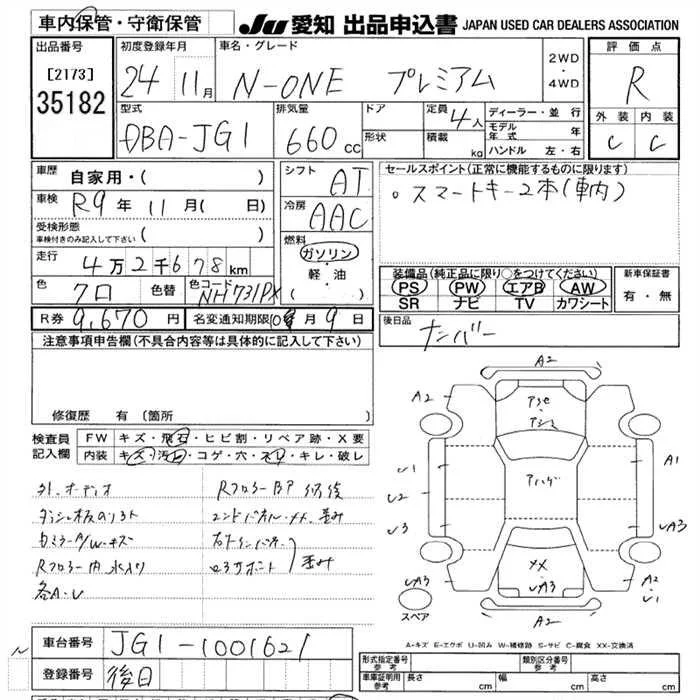 車内保管・守衛保管
JU愛知 出品申込書 JAPAN USED CAR DEALERS ASSOCIATION
出品番号
[2173]
35182
初度登録年月
24 11月
車名・グレード
N-ONE プレミアム
2WD・4WD
評価点
R
外装 内装
C C
型式
DBA-JG1
排気量
660cc
ドア
形状
定員 4人
積載 kg
ディーラー・並行
モデル年式 年
ハンドル 左・右
車歴 自家用・( )
車検 R9年 11月( 日)
受検形態
車検付きのみ記入して下さい ( )
走行 4万2千678km
色 クロ 色替 色コード NH731PX
シフト AT
冷房 AAC
燃料
ガソリン
軽・油
セールスポイント(正常に機能するものに限ります)
○スマートキー2本(車内)
装備品(純正品に限り○をつけてください)
PS PW エアB AW
SR ナビ TV カワシート
新車保証書
有・無
R券 9,670円 名変通知期限 月9日
後日品
ナンバー
注意事項申告欄(不具合内容等は具体的に記入して下さい)
修復歴 有 (箇所 )
検査員記入欄
FW キズ・飛石・ヒビ割・リペア跡・X要
内装 キズ・汚れ・コゲ・穴・スレ・キレ・破レ
外.オーディオ
Rフロアー内
各A・U
エンドパネル
A2
A2
U1
U2
U3
A1
UA3
アハゲ
XX
UA3
UA3
A2
U1
A2
スペア
A-キズ E-エクボ U-凹み W-補修跡 S-サビ C-腐食 XX-交換済
車台番号 JG1-1001621
登録番号 後日
形式指定番号 参考
類別区分番号 参考
車庫証明用 参考 長さ cm 幅 cm 高さ cm